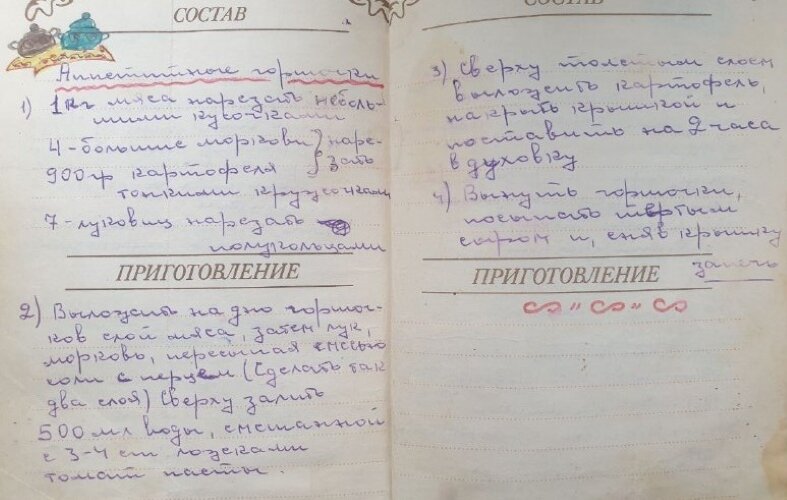 СОСТАВ
Аппетитные горшочки
1) 1 кг мяса нарезать неболь-
шими кусочками
4 - большие моркови } наре-
900 гр картофеля } зать
тонкими кружочками
7 - луковиц нарезать
полукольцами
ПРИГОТОВЛЕНИЕ
2) Выложить на дно горшоч-
ков слой мяса, затем лук,
морковь, пересыпая смесью
соли с перцем (Сделать так
два слоя) Сверху залить
500 мл воды, смешанной
с 3-4 ст ложками
томат пасты.
СОСТАВ
3) Сверху толстым слоем
выложить картофель,
накрыть крышкой и
поставить на 2 часа
в духовку
4) Вынуть горшочки,
посыпать тёртым
сыром и, сняв крышку
запечь
ПРИГОТОВЛЕНИЕ